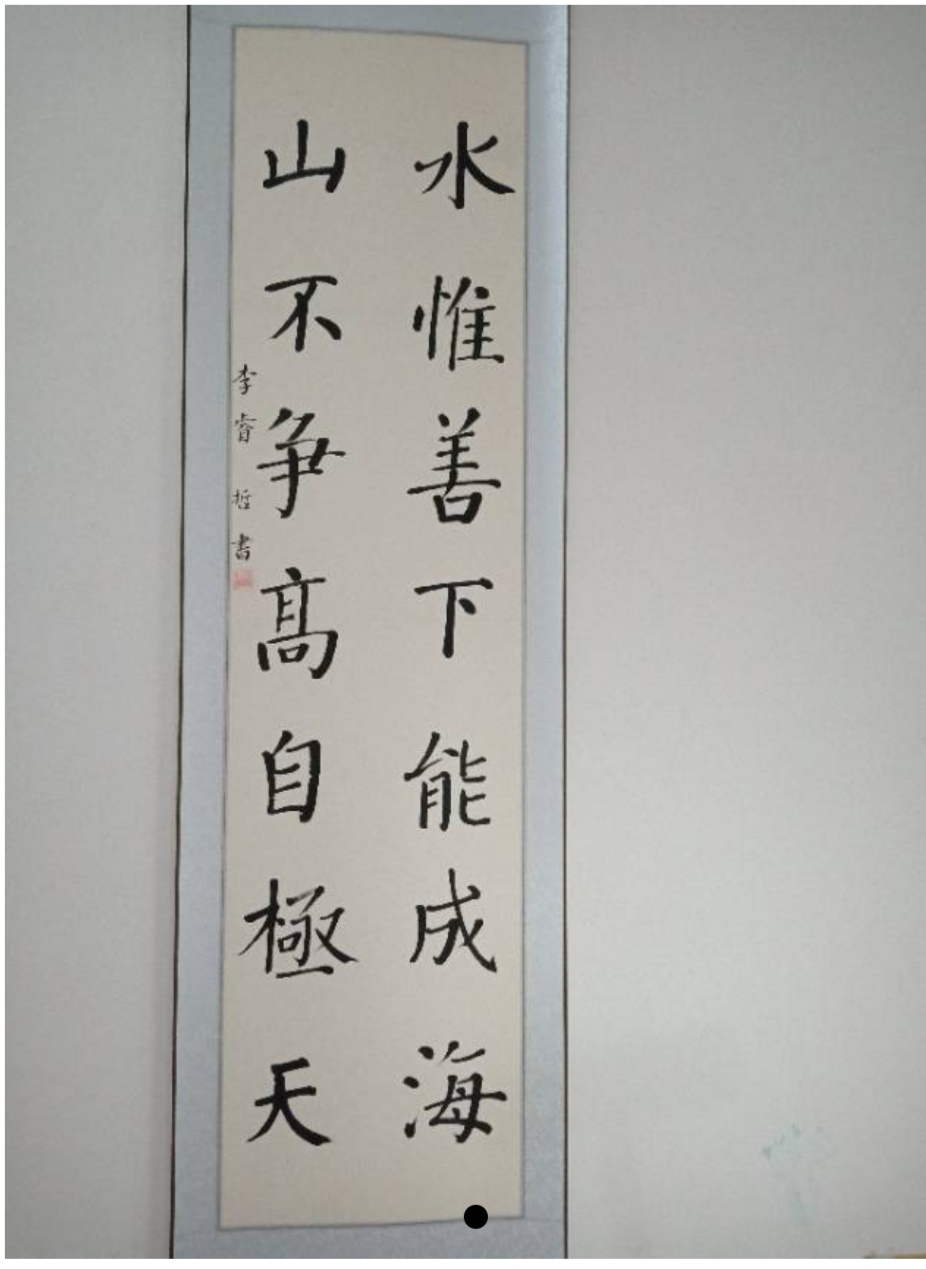 水惟善下能成海
山不争髙自極天
李睿哲書